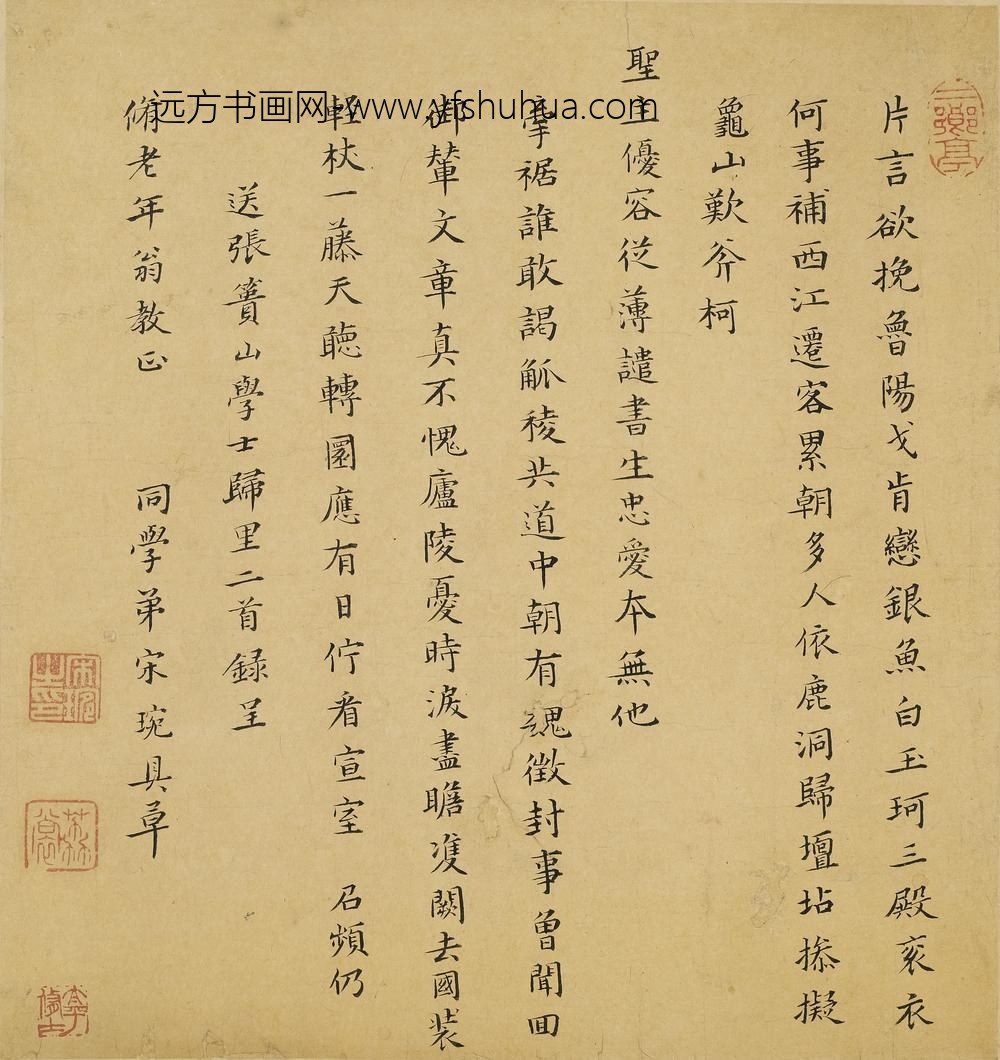 远方书画网 www.yfshuhua.com
片言欲挽魯陽戈肯戀銀魚白玉珂三殿袞衣
何事補西江遷客累朝多人依鹿洞歸壇坫搽擬
龜山歎斧柯
聖主優容從薄譴書生忠愛本無他
牽裾誰敢謁觚稜共道中朝有魏徵封事曾聞回
御輦文章真不愧廬陵憂時淚盡瞻雙闕去國裝
輕杖一藤天聽轉圜應有日佇看宣室 召頻仍
送張簣山學士歸里二首録呈
脩老年翁教正 同學弟宋琬具草